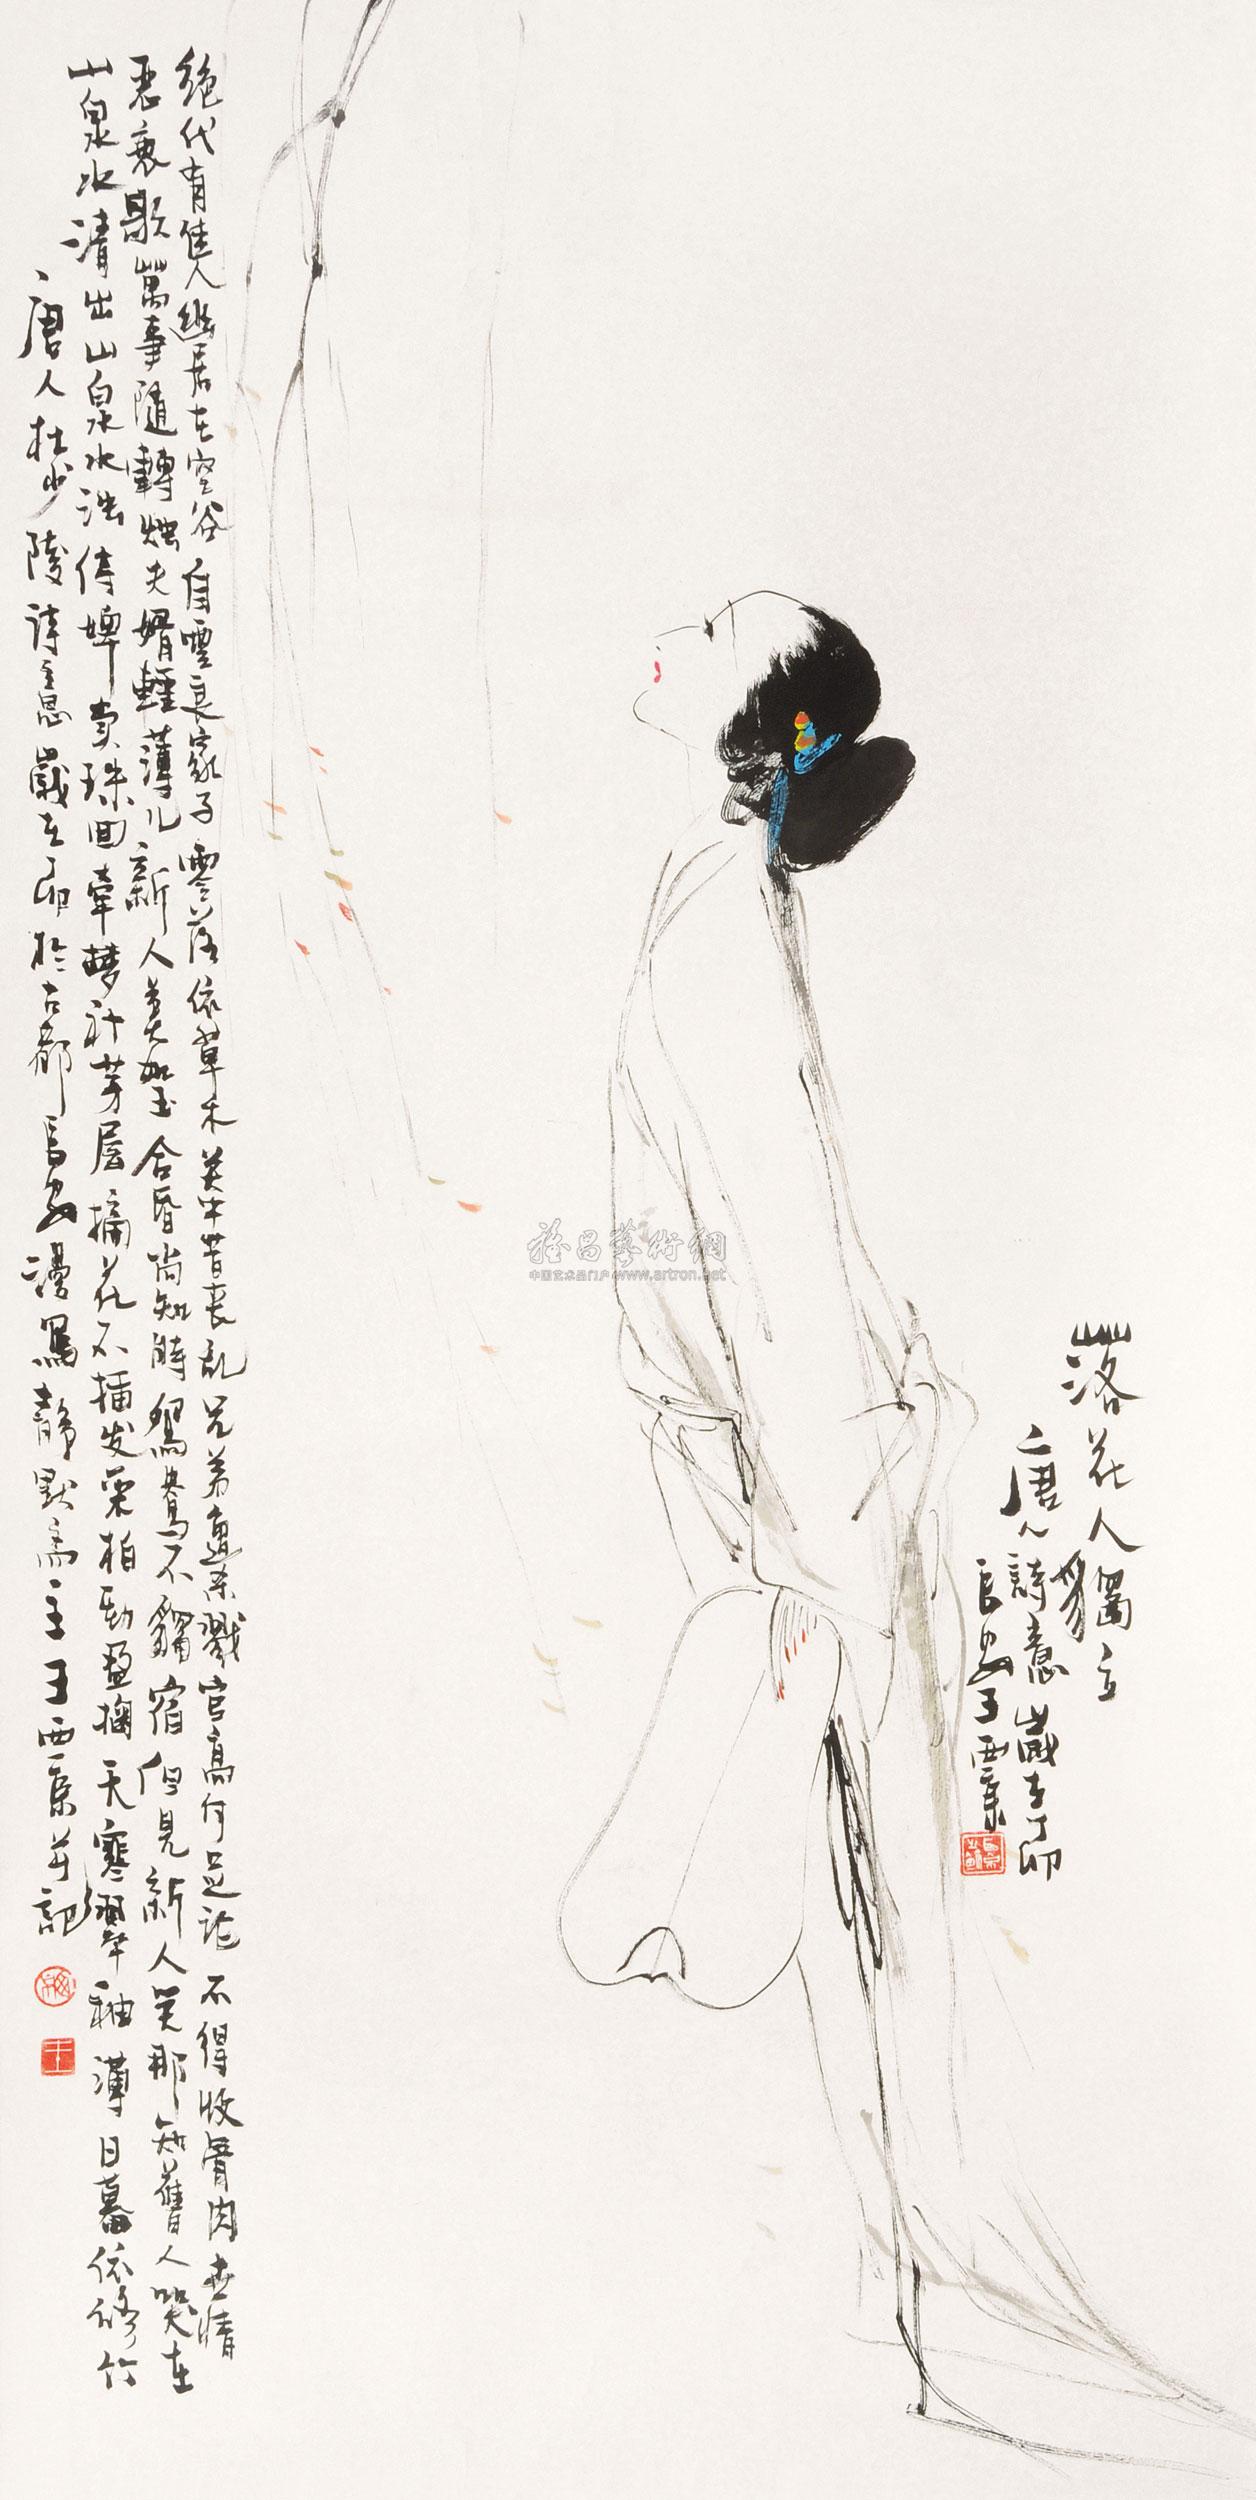 落花人獨立
唐人詩意歲辛卯
長安王西京
绝代有佳人幽居在空谷自雲良家子零落依草木关中昔喪乱兄弟遭杀戮官高何足论不得收骨肉世情
恶衰歇萬事隨轉烛夫婿輕薄儿新人美如玉合昏尚知時鴛鴦不獨宿但見新人笑那知舊人哭在
山泉水清出山泉水浊侍婢卖珠回牽梦补茅屋摘花不插发采柏动盈掬天寒翠袖薄日暮依修竹
唐人杜少陵诗意歲辛卯於古都長安漫寫靜默斋主王西京并記
王
雅昌藝術網
中国艺术品门户 www.artron.net